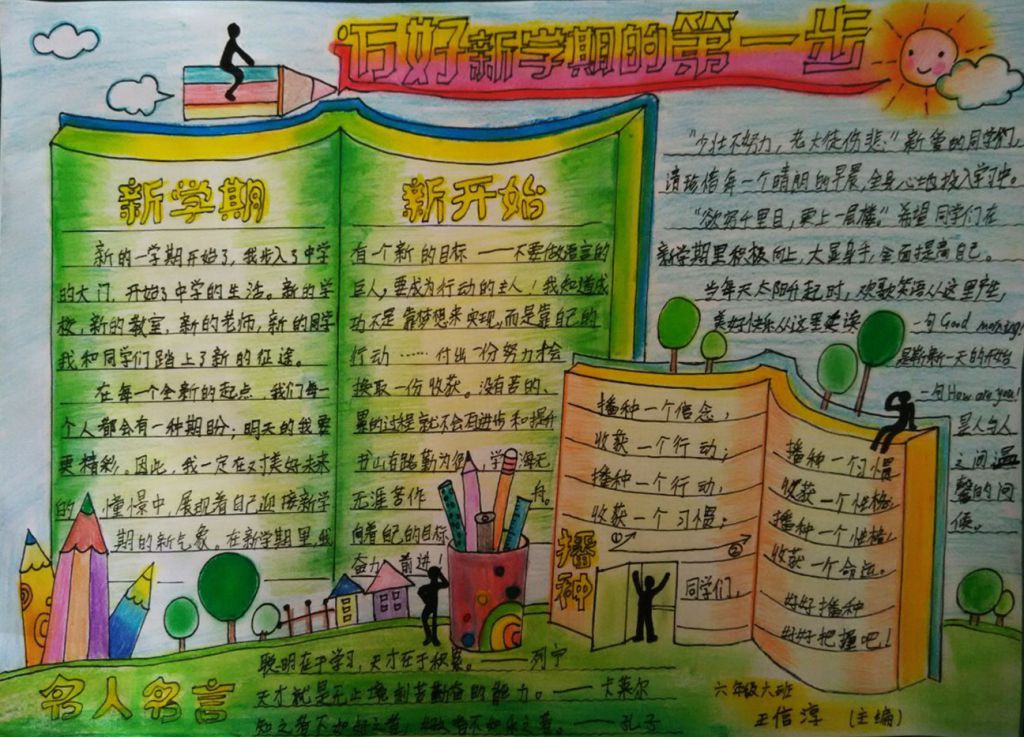 迈好新学期的第一步
新学期
新的一学期开始了,我步入了中学
的大门,开始了中学的生活。新的学
校,新的教室,新的老师,新的同学
我和同学们踏上了新的征途。
在每一个全新的起点,我们每一
个人都会有一种期盼;明天的我要
更精彩。因此,我一定在对美好未来
的憧憬中,展现着自己迎接新学
期的新气象。在新学期里,我
新开始
有个新的目标——不要做语言的
巨人,要成为行动的主人!我知道成
功不是靠梦想来实现,而是靠自己的
行动……付出一份努力才会
换取一份收获。没有苦的、
累的过程就不会有进步和提升
书山有路勤为径,学海无
无涯苦作舟。
向着自己的目标
奋力前进!
"少壮不努力,老大徒伤悲;"新堂的同学们,
请珍惜每一个晴朗的早晨,全身心地投入学习中。
"欲穷千里目,更上一层楼。"希望同学们在
新学期里积极向上,大显身手,全面提高自己。
当每天太阳升起时,欢歌笑语从这里产生,
美好快乐从这里建读
一句Good morning!
是崭新一天的开始
一句How are you!
是人与人
之间温
馨的问
候。
播种
播种一个信念,
收获一个行动;
播种一个行动,
收获一个习惯;
①
②
同学们,
播种一个习惯
收获一个性格;
播种一个性格,
收获一个命运。
好好播种
好好把握吧!
名人名言
聪明在于学习,天才在于积累。——列宁
天才就是无止境刻苦勤奋的能力。——卡莱尔
知之者不如好之者,好之者不如乐之者。——孔子
六年级六班
王信淳(主编)